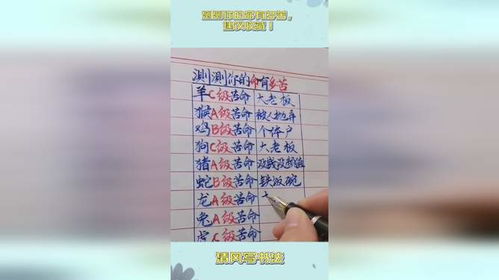 测测你的命有多苦
羊C级苦命 大老板
猴A级苦命
鸡B级苦命 个体户
狗C级苦命 大老板
猪A级苦命
蛇B级苦命 铁饭碗
龙A级苦命
兔A级苦命
虎C级苦命
清风写书法